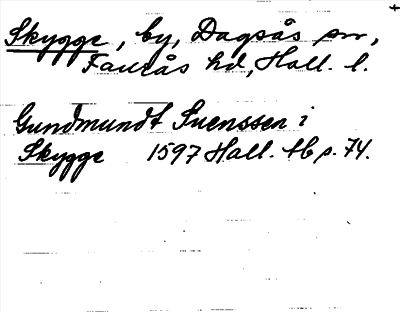 Skygge, by, Dagsås sn,
Faurås hd, Hall. l.
Gundmundt Suenssen i
Skygge 1597 Hall. tb s. 74.